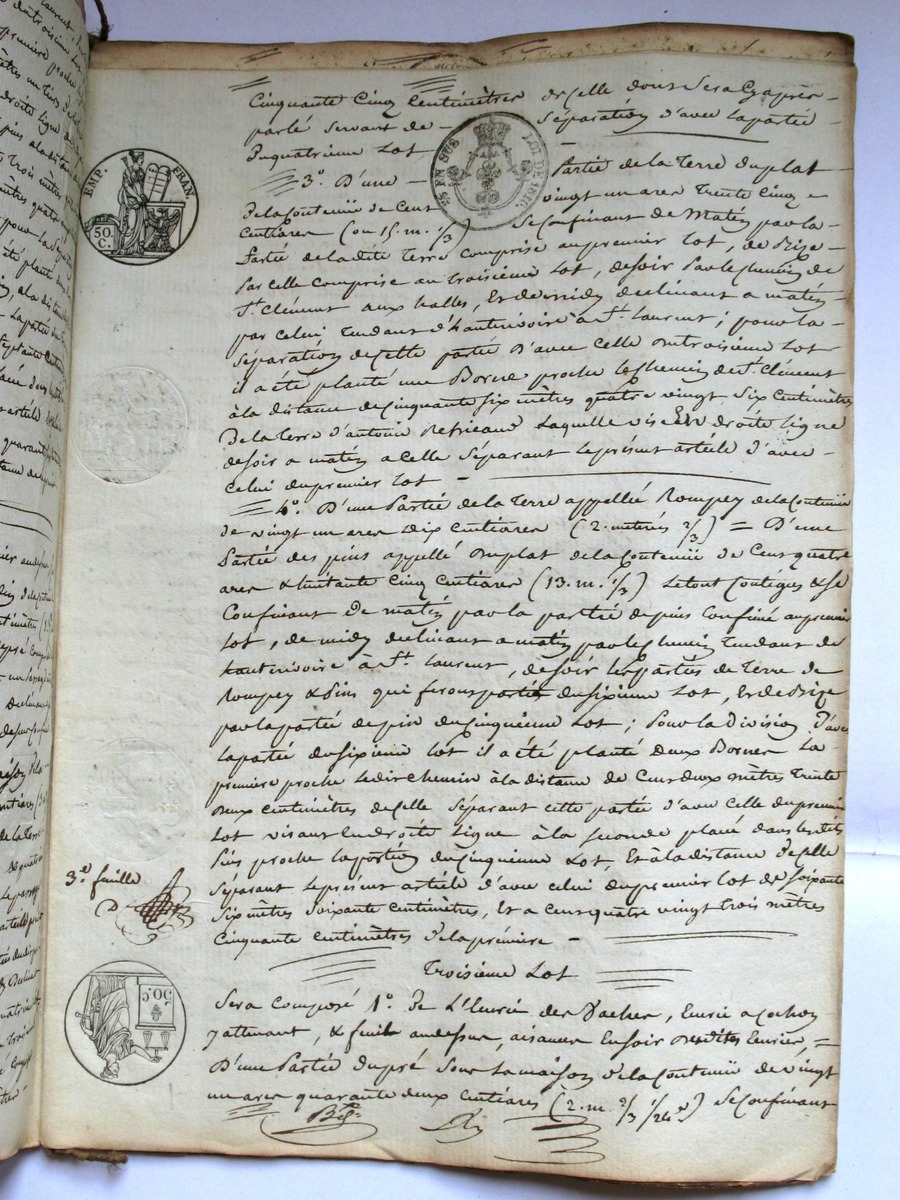 Cinquante Cinq Centimètres de celle dont Sera Cy après
parlé servant de Séparation d'avec la partie
Du quatrième Lot
3.º D'une Partie de la Terre Du plat
De la Contenüe de Cent vingt un ares Trente Cinq
Centiares (ou 15. m. 1/3) Se Confinant de Matin par la
Partie de la dite Terre Comprise au premier Lot, de Bize
Par celle Comprise au troisième Lot, de soir Par le Chemin de
St. Clément aux halles, Et de midy declinant a matin
par celui Tendant d'hauterivoire à St. Laurent; pour la
Séparation de Cette partie D'avec Celle du troisième Lot
il a été planté une Borne proche le Chemin de St. Clément
à la distance de Cinquante Six mètres quatre vingt Six Centimètres
De la Terre d'antoine Laquelle vise En droite Ligne
de soir a matin a celle Séparant le présent article d'avec
Celui du premier Lot
4.º D'une Partie de la Terre appellée Rompey de la Contenüe
de vingt un ares Dix Centiares (2. métrées 2/3) = D'une
Partie des pins appellé du plat de la Contenüe de Cent quatre
ares & huitante Cinq Centiares (13. m. 1/3) Le tout Contigus & se
Confinant De matin par la partie de pins Confiné au premier
Lot, de midy declinant a matin par le Chemin Tendant de
hauterivoire à St. Laurent, de soir les parties de Terre de
Rompey & Pins qui feront partie du Sixième Lot, Et de Bize
par la partie de pin du Cinquième Lot; Pour la Division D'avec
La partie du Sixième Lot il a été planté deux Bornes La
première proche Le dit chemin à la distance de Cent deux mètres Trente
Deux Centimètres de Celle Séparant cette partie d'avec Celle du premier
Lot visant En droite Ligne à la Seconde placé dans les dits
Pins proche la portion du Cinquième Lot, Et à la distance De Celle
Séparant le présent article d'avec celui du premier Lot de Soixante
Six mètres Soixante Centimètres, Et a Cent quatre vingt Trois mètres
Cinquante Centimètres De la première
Troisième Lot
Sera Composé 1.º De L'Ecurie des Vaches, Ecurie a Cochon
y attenant, & fenil au dessus, aisances En soir Des dites Ecuries, =
D'une Partie Du pré Sous La maison De la Contenüe de vingt
un ares quarante deux Centiares (2. m. 2/3 1/24e) Se Confinant
EMP. FRAN.
50. C.
EN SUS
LOI DE 1816
3.e feuille
50. C.